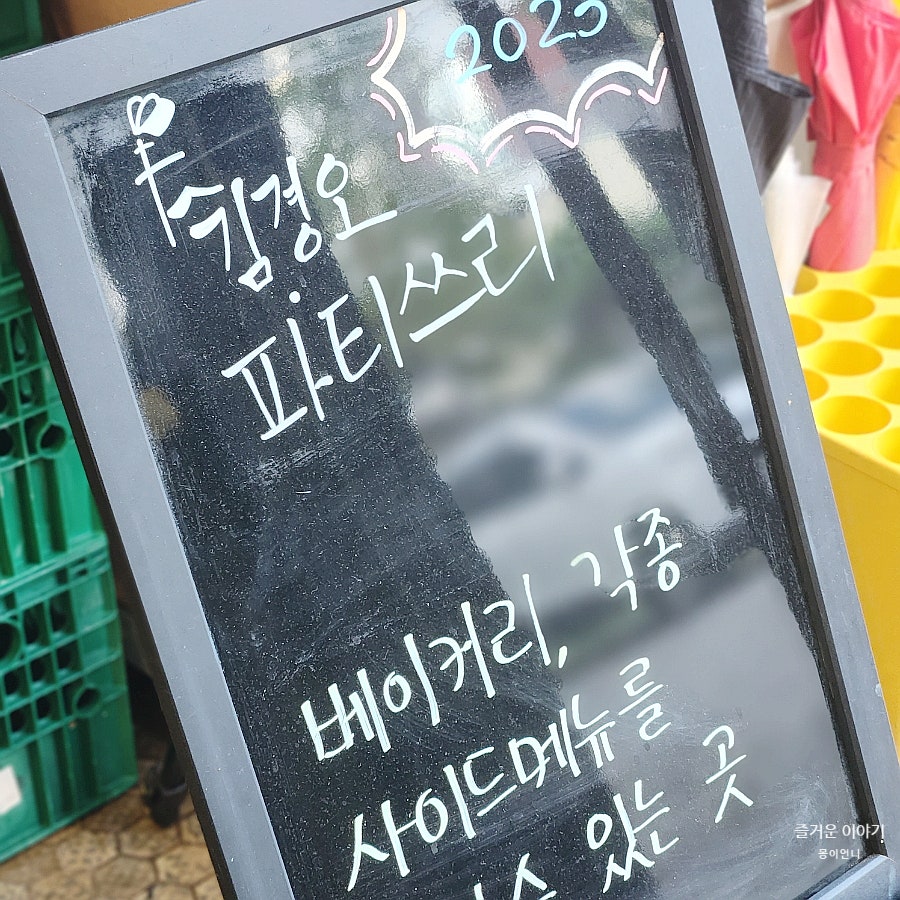 2023
김경오
파티쓰리
베이커리, 각종
사이드메뉴를
수 있는 곳
즐거운 이야기
몽이언니